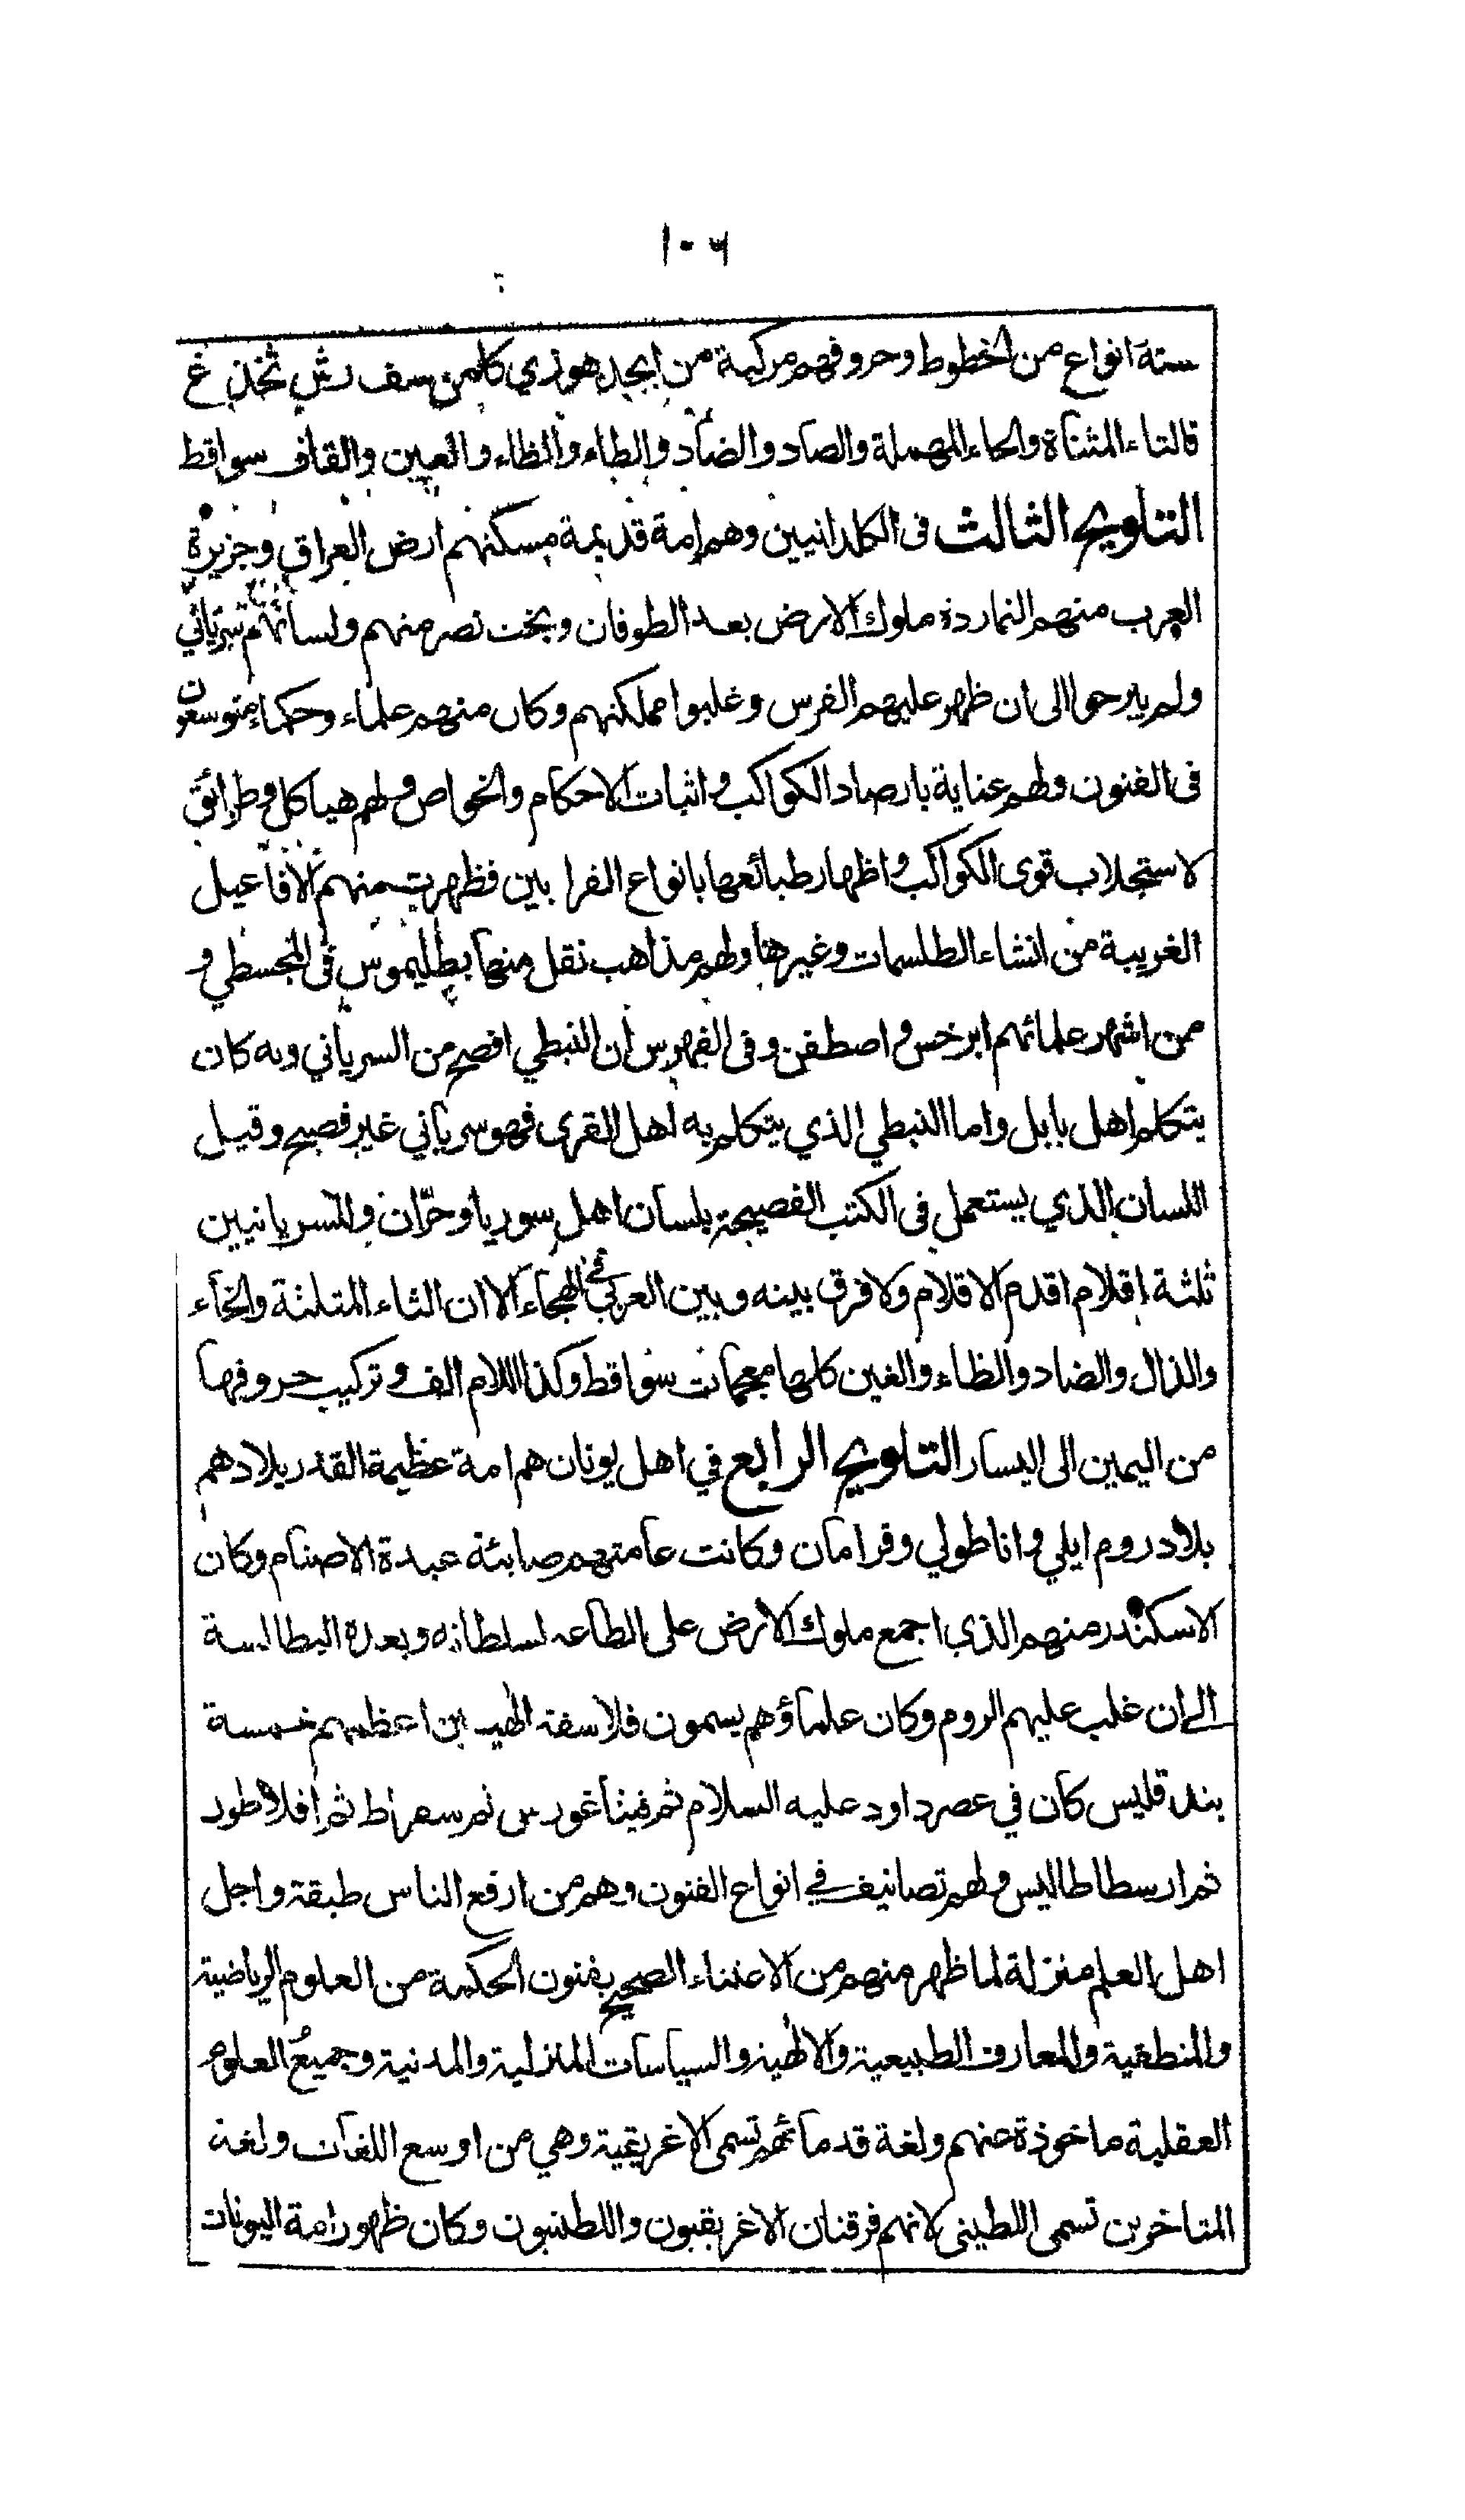 ١٠٦
ستة انواع من الخطوط وحروفهم مركبة من ابجد هوزي كلمن سف رش ثخذ غ
فالتاء المثناة والحاء المهملة والصاد والضاد والطاء والظاء والعين والقاف سواقط
التلويح الثالث فى الكلدانيين وهم امة قديمة مسكنهم ارض العراق وجزيرة
العرب منهم النماردة ملوك الارض بعد الطوفان وبخت نصر منهم ولسانهم سرياني
ولم يبرحوا الى ان ظهر عليهم الفرس وغلبوا مملكتهم وكان منهم علماء وحكماء متوسعون
فى الفنون ولهم عناية بارصاد الكواكب واثبات الاحكام والخواص ولهم هياكل وطرائق
لاستجلاب قوى الكواكب واظهار طبائعها بانواع القرابين فظهرت منهم الافاعيل
الغريبة من انشاء الطلسمات وغيرها ولهم مذاهب نقل منها بطليموس فى المجسطي و
من اشهر علمائهم ابرخس واصطفن وفى الفهرس أن النبطي افصح من السرياني وبه كان
يتكلم اهل بابل واما النبطي الذي يتكلم به اهل القرى فهو سرياني غير فصيح وقيل
اللسان الذي يستعمل فى الكتب الفصيحة بلسان اهل سوريا وحرّان وللسريانيين
ثلثة اقلام اقدم الاقلام ولا فرق بينه وبين العربي في الهجاء الا ان الثاء المثلثة والخاء
والذال والضاد والظاء والغين كلها معجمات سواقط وكذا اللام الف وتركيب حروفها
من اليمين الى اليسار التلويح الرابع في اهل يونان هم امة عظيمة القدر بلادهم
بلاد روم ايلي واناطولي وقرامان وكانت عامتهم صابئة عبدة الاصنام وكان
الاسكندر منهم الذي اجمع ملوك الارض على الطاعه لسلطانه وبعده البطالسة
الى ان غلب عليهم الروم وكان علماؤهم يسمون فلاسفة الهيين اعظمهم خمسة
بندقليس كان في عصر داود عليه السلام ثم فيثاغورس ثم سقراط ثم افلاطون
ثم ارسطاطاليس ولهم تصانيف في انواع الفنون وهم من ارفع الناس طبقة واجل
اهل العلم منزلة لما ظهر منهم من الاعتناء الصحيح بفنون الحكمة من العلوم الرياضية
والمنطقية والمعارف الطبيعية والالهية والسياسات المنزلية والمدنية وجميع العلوم
العقلية ماخوذة عنهم ولغة قدمائهم تسمى الاغريقية وهي من اوسع اللغات ولغة
المتاخرين تسمى اللطيني لانهم فرقتان الاغريقيون واللطنيون وكان ظهور امة اليونان